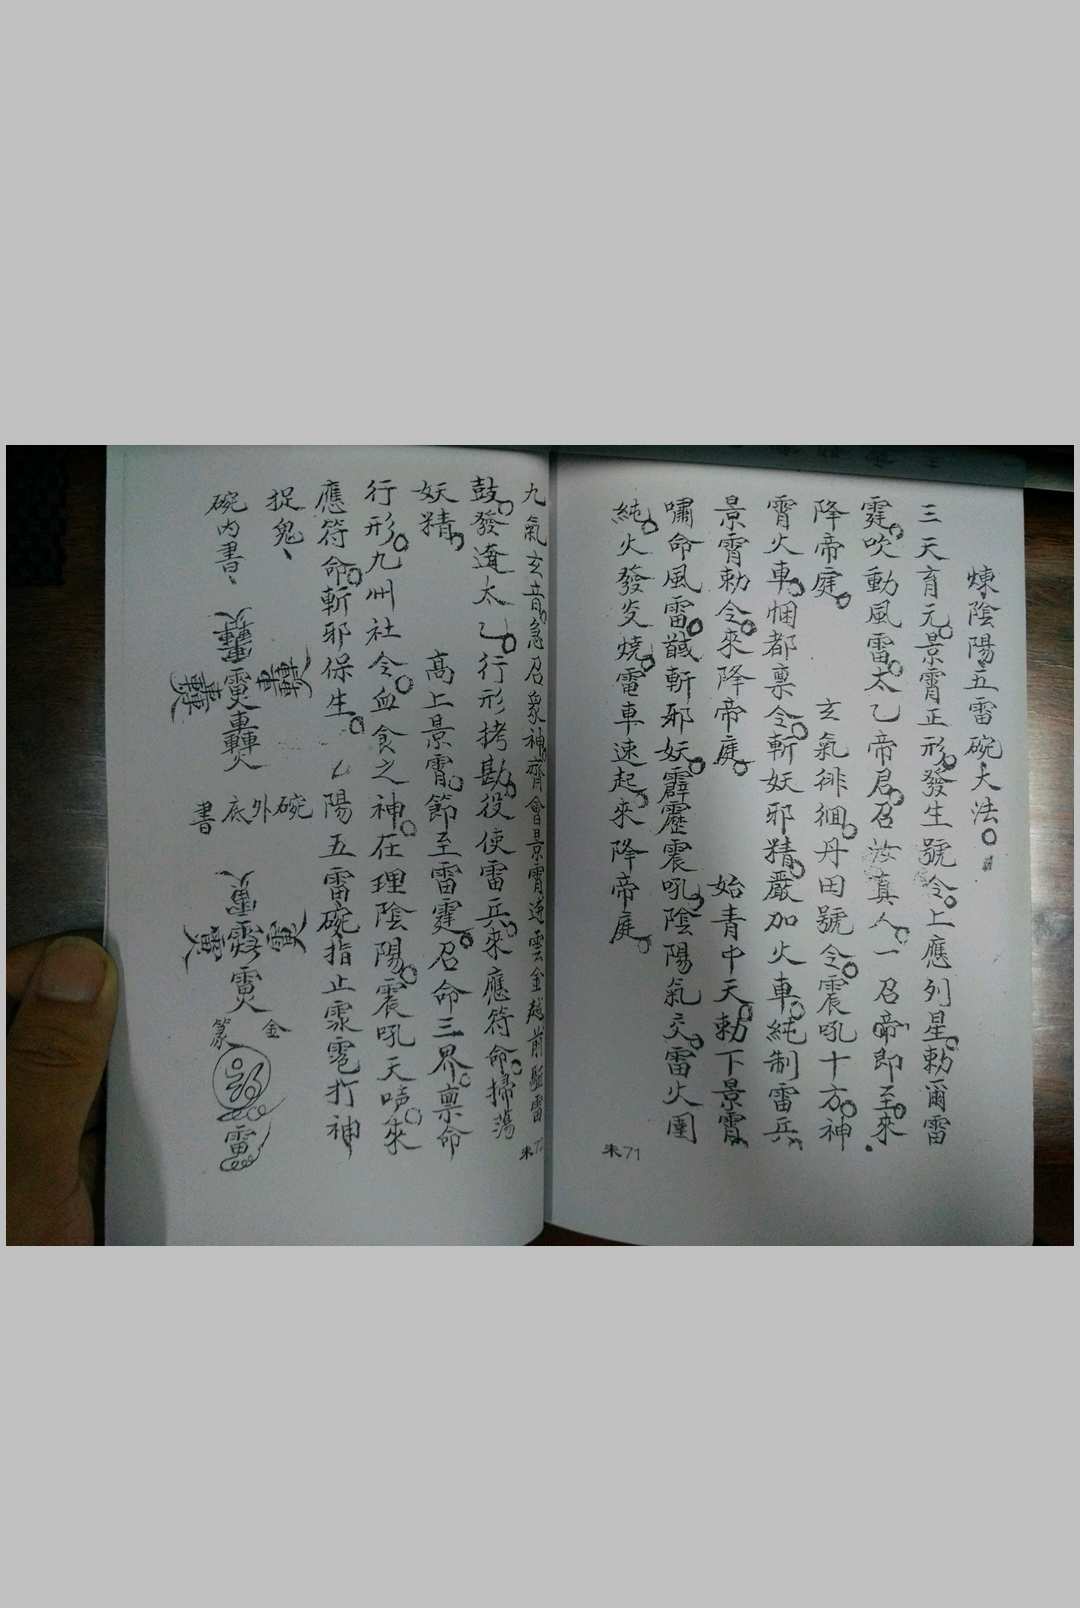 煉陰陽五雷碗大法。
三天育元。景霄正形。發生號令。上應列星。勅爾雷
霆。吹動風雷。太乙帝君。召汝真人。一召帝即至。來
降帝庭。 玄氣徘徊。丹田號令。震吼十方。神
霄火車。悃都禀令。斬妖邪精。嚴加火車。純制雷兵。
景霄勅令。來降帝庭。 始青中天。勅下景霄。
嘯命風雷。馘斬邪妖。霹靂震吼。陰陽氣交。雷火圍
純。火發炎燒。電車速起。來降帝庭。
朱71
九氣玄音。急召眾神。齊會景霄。金越前驅。雷
鼓。發 太乙。行形拷勘。役使雷兵。來應符命。掃蕩
妖精。 高上景霄。節至雷霆。召命三界。禀命
行形。九州社令。血食之神。在理陰陽。震吼天声。來
應符命。斬邪保生。 陽五雷碗指止 打神
捉鬼、
碗內書、
雷
碗外底書
雷
金篆
雷
朱72